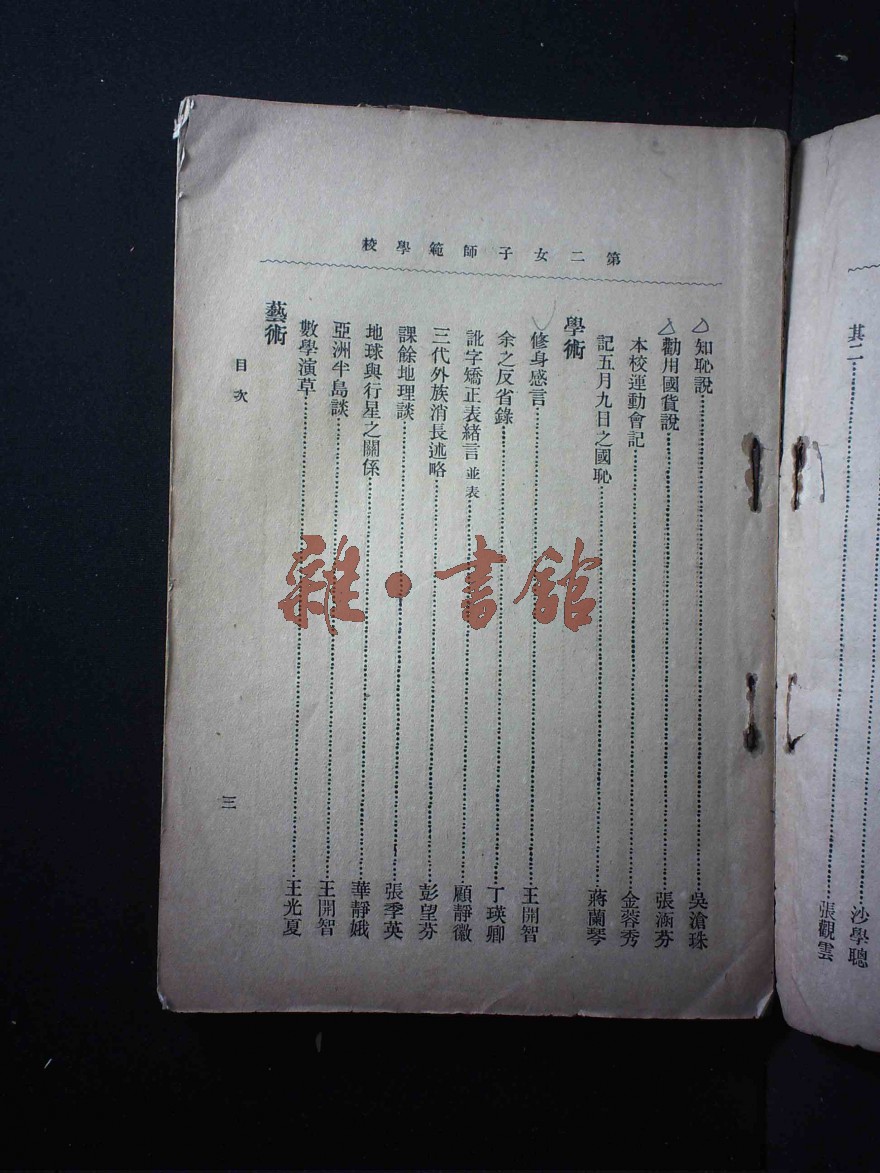 其二
沙學聰
張觀雲
第二女子師範學校
知恥說 吳滄珠
勸用國貨說 張涵芬
本校運動會記 金蓉秀
記五月九日之國恥 蔣蘭琴
學術
修身感言 王開智
余之反省錄 丁瑛卿
訛字矯正表緒言並表 顧靜徽
三代外族消長述略 彭望芬
課餘地理談 張季英
地球與行星之關係 華靜娥
亞洲半島談 王開智
數學演草 王光夏
藝術
目次
三
雜·書館